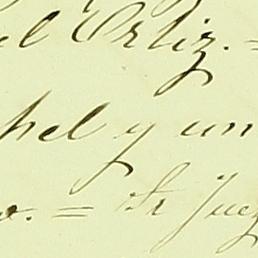 el Ortiz. =
pel y un
o. = Sr Juez